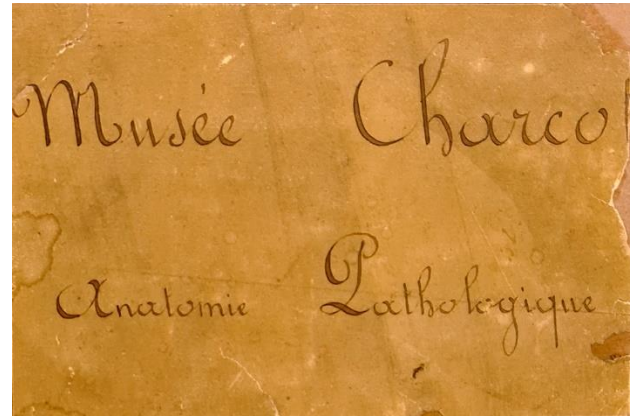 Musée Charco
Anatomie Pathologique